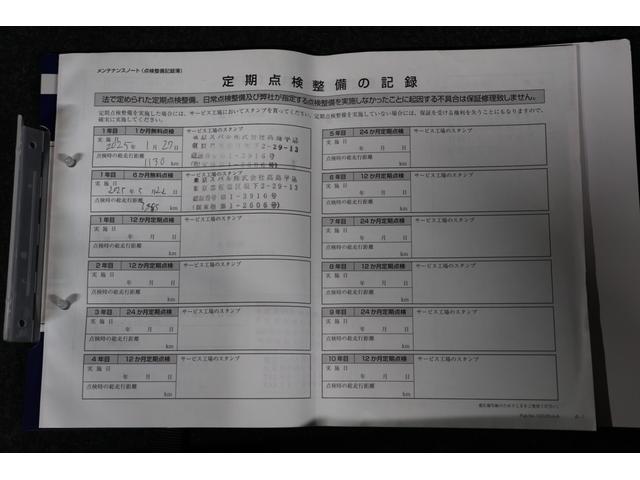 メンテナンスノート(点検整備記録簿)
定期点検整備の記録
法で定められた定期点検整備、日常点検整備及び弊社が指定する点検整備を実施しなかったことに起因する不具合は保証修理致しません。
定期点検整備を実施した場合には、サービス工場においてスタンプを貰ってください。定期点検整備を実施していない場合には、保証を受ける権利を失うことにもなりますので、
確実に実施してください。
1年目 1か月無料点検 サービス工場のスタンプ
実施日
2025年 1月27日
点検時の総走行距離
1130 km
1年目 6か月無料点検 サービス工場のスタンプ
実施日
2025年5月22日
点検時の総走行距離
km
東京スバル株式会社
下2-29-13
1-3916号
1-2606号)
1年目 12か月定期点検 サービス工場のスタンプ
実施日
年 月 日
点検時の総走行距離
km
2年目 12か月定期点検 サービス工場のスタンプ
実施日
年 月 日
点検時の総走行距離
km
3年目 24か月定期点検 サービス工場のスタンプ
実施日
年 月 日
点検時の総走行距離
km
4年目 12か月定期点検 サービス工場のスタンプ
実施日
年 月 日
点検時の総走行距離
km
5年目 24か月定期点検 サービス工場のスタンプ
実施日
年 月 日
点検時の総走行距離
km
6年目 12か月定期点検 サービス工場のスタンプ
実施日
年 月 日
点検時の総走行距離
km
7年目 24か月定期点検 サービス工場のスタンプ
実施日
年 月 日
点検時の総走行距離
km
8年目 12か月定期点検 サービス工場のスタンプ
実施日
年 月 日
点検時の総走行距離
km
9年目 24か月定期点検 サービス工場のスタンプ
実施日
年 月 日
点検時の総走行距離
km
10年目 12か月定期点検 サービス工場のスタンプ
実施日
年 月 日
点検時の総走行距離
km